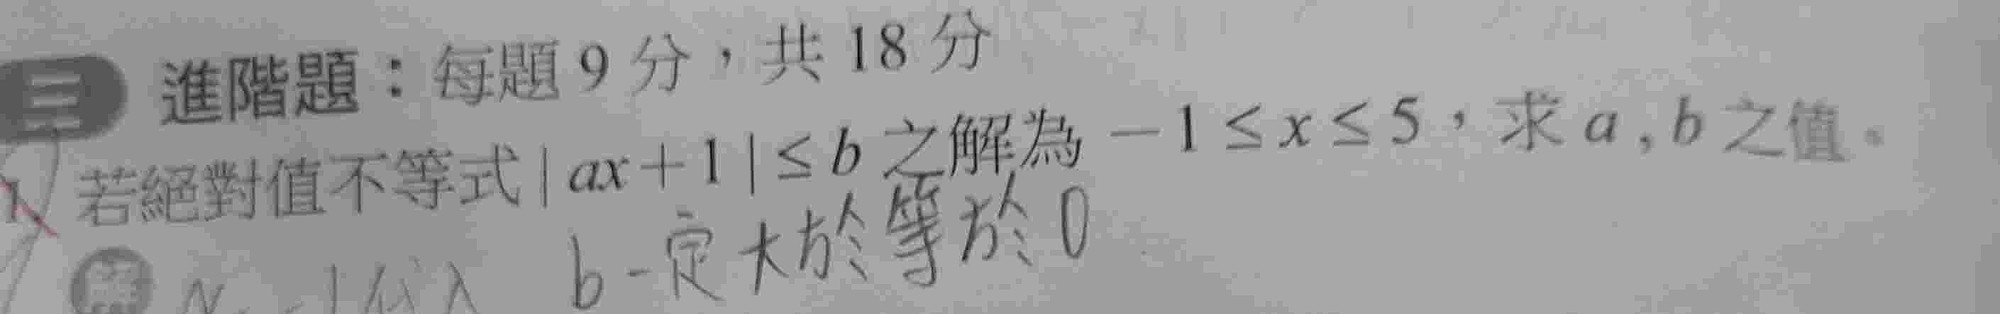 三 進階題：每題 9 分，共 18 分
1. 若絕對值不等式 | ax + 1 | ≤ b 之解為 －1 ≤ x ≤ 5，求 a , b 之值。
b 一定大於等於 0
解 -1代入